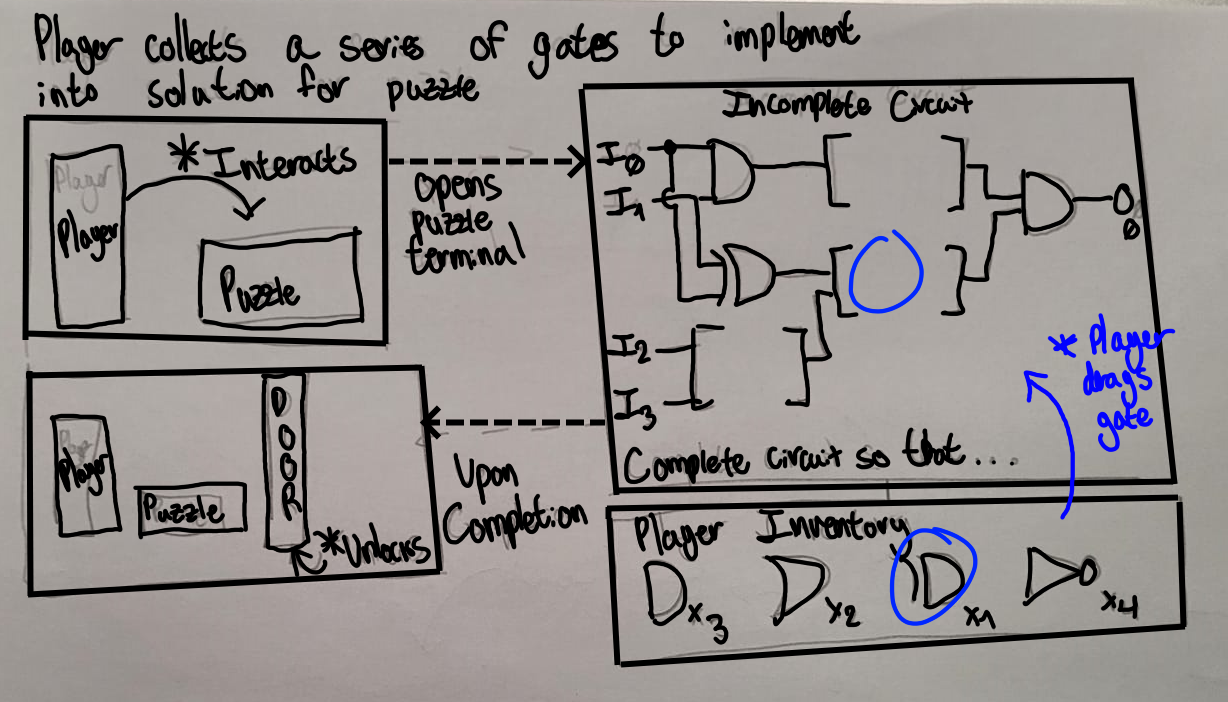 Player collects a series of gates to implement
into solution for puzzle
Player
Player
* Interacts
Puzzle
Opens
puzzle
terminal
Incomplete Circuit
I0
I1
I2
I3
O0
* Player
drags
gate
Complete circuit so that...
Player Inventory
x3
x2
x1
x4
Upon
Completion
Player
Puzzle
DOOR
*Unlocks